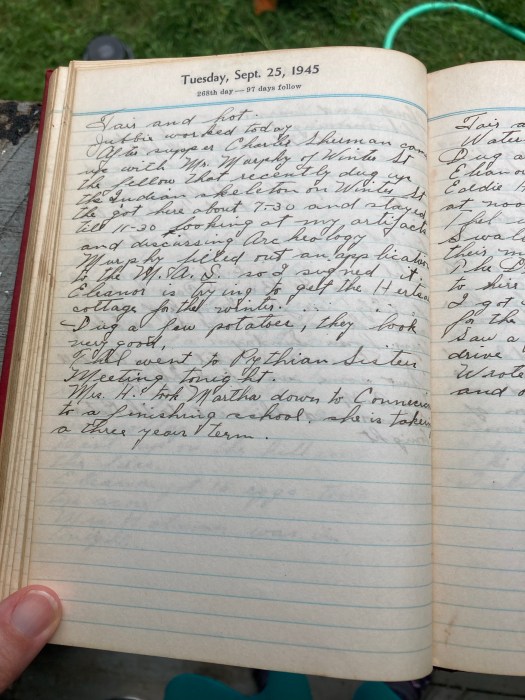 Tuesday, Sept. 25, 1945
268th day — 97 days follow
Fair and hot.
Jubbie worked today
After supper Charlie Sherman came
up with Mr. Murphy of Winter St
the fellow that recently dug up
the Indian skeleton on Winter St.
the got here about 7-30 and stayed
till 10-30 looking at my artifacts
and discussing Archeology
Murphy filed out an application
to the M.A.S. so I signed it.
Eleanor is trying to get the
cottage for the winter. . . .
Dug a few potatoes, they look
very good,
went to Pythian Sister
Meeting tonight.
Mrs. H. took Martha down to
to a finishing school. she is
a three year term.
Fair a
Dug a
Elean
Eddie
at noo
I
their m
The
to
I got
for the
Saw a
drive
Wrote
and